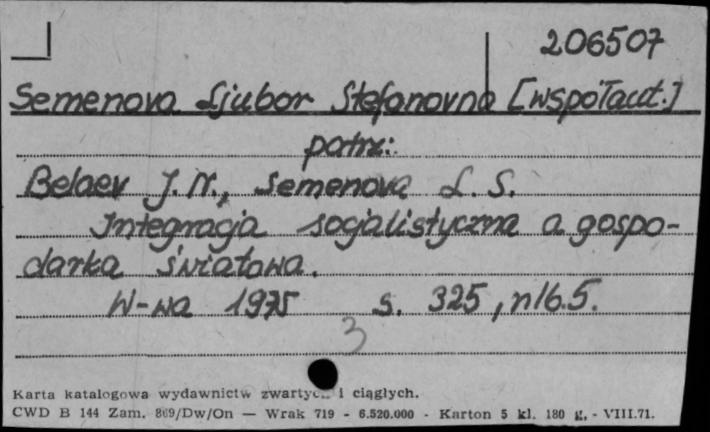 206507
Semenova Ljubov Stefanovna [współaut.]
patrz:
Belaev J. N., Semenova L. S.
Integracja socjalistyczna a gospo-
darka światowa.
W-wa 1975 s. 325, nlb. 5.
3
Karta katalogowa wydawnictw zwartyc. i ciągłych.
CWD B 144 Zam. 869/Dw/On — Wrak 719 - 6.520.000 - Karton 5 kl. 180 g. - VIII.71.